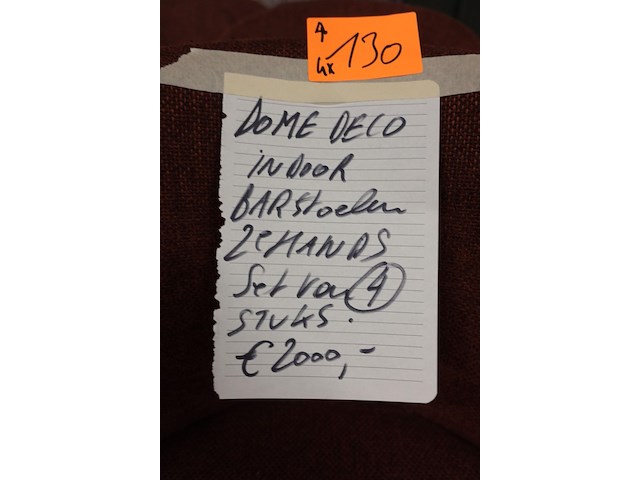 4
4x 130
DOME DECO
INDOOR
BARstoelen
2e HANDS
Set van 4
STUKS.
€ 2000,-